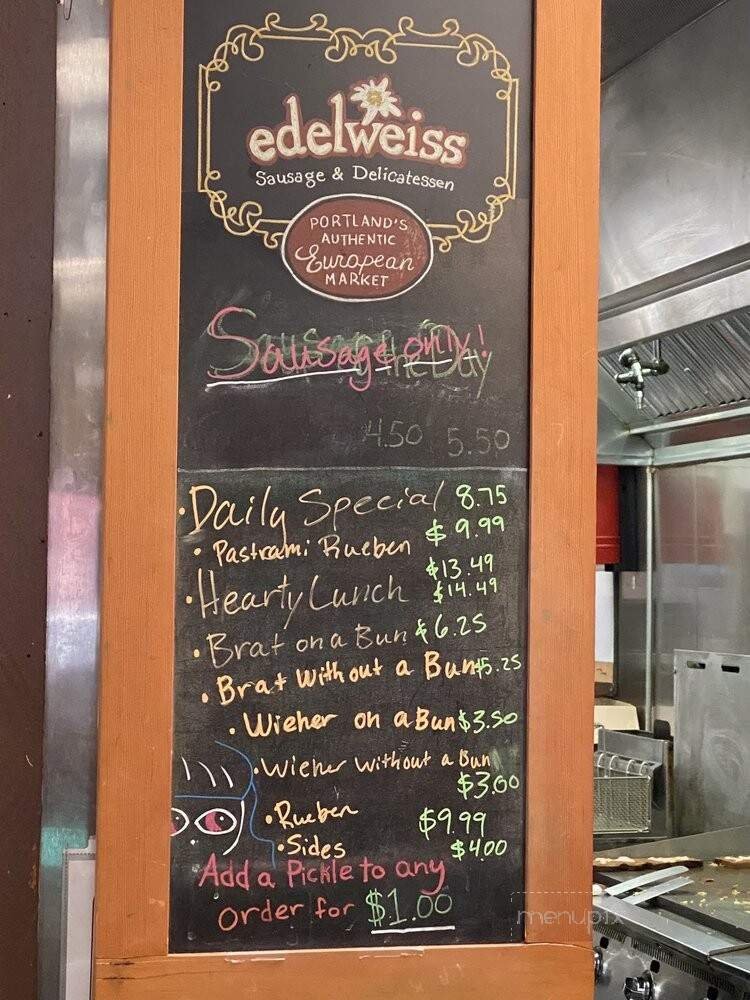 edelweiss
Sausage & Delicatessen
PORTLAND'S
AUTHENTIC
European
MARKET
Sausage only!
the Day
4.50 5.50
• Daily Special 8.75
• Pastrami Rueben $9.99
• Hearty Lunch $13.49
$14.49
• Brat on a Bun $6.25
• Brat without a Bun $5.25
• Wiener on a Bun $3.50
• Wiener without a Bun
$3.00
• Rueben $9.99
• Sides $4.00
Add a Pickle to any
order for $1.00
menupix